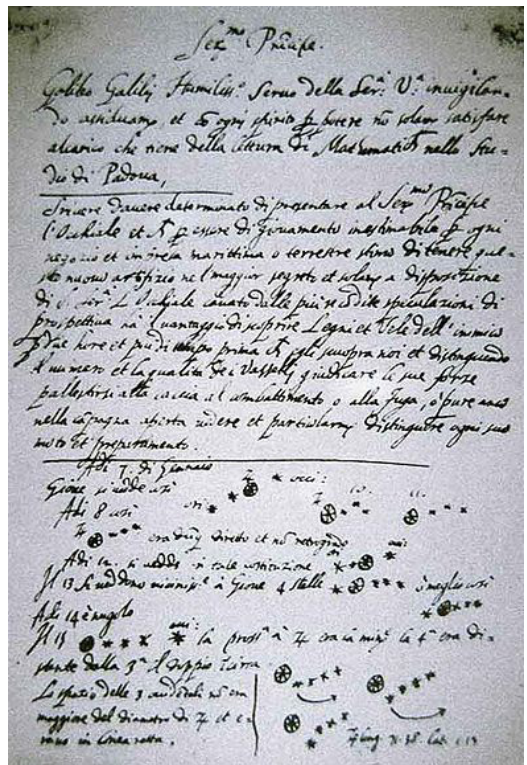 Ser.mo Principe.
Galileo Galilej Humiliss.o Servo della Ser.a V.a invigilan-
do assiduam.te et cō ogni spirito ꝑ potere nō solam satisfare
al carico che tiene della lettura di Mathematich nello stu-
dio di Padova,
Scrivere d'avere determinato di presentare al Ser.mo Principe
l'Occhiale et ꝑ essere di giovamento inestimabile ꝑ ogni
negozio et impresa marittima o terrestre stimo di tenere que-
sto nuovo artifizio nel maggior segreto et solam a disposizione
di S. Ser.a L'Occhiale cavato dalle più recondite speculazioni di
prospettiva ha il vantaggio di scoprire Legni et Vele dell'inimico
due hore et più di tempo prima egli scuopra noi et distinguendo
il numero et la qualità de i Vasselli giudicare le sue forze
pallestirsi alla caccia al combattimento o alla fuga, o pure anco
nella capagna aperta vedere et particolarm distinguere ogni suo
moto et preparamento.
Adi 7. di Gennaio
Gione si vedde così occi:
Adi 8 così ori: 10. 11.
era dirett o et nō retrogrado
Adi 12. si vedde in tale costituzione
Il 13 si veddono vicinissi a Gione 4 stelle o meglio così
Adi 14 è nugolo
Il 15 occi: la pross.a a ♃ era la min.e la 4.a era di-
stante dalla 3.a il doppio circa
Lo spazio delle 3 occidentali nō era
maggiore del diametro di ♃ et e-
rano in linea retta.
♃ long. 71.38 Lat. 1.13